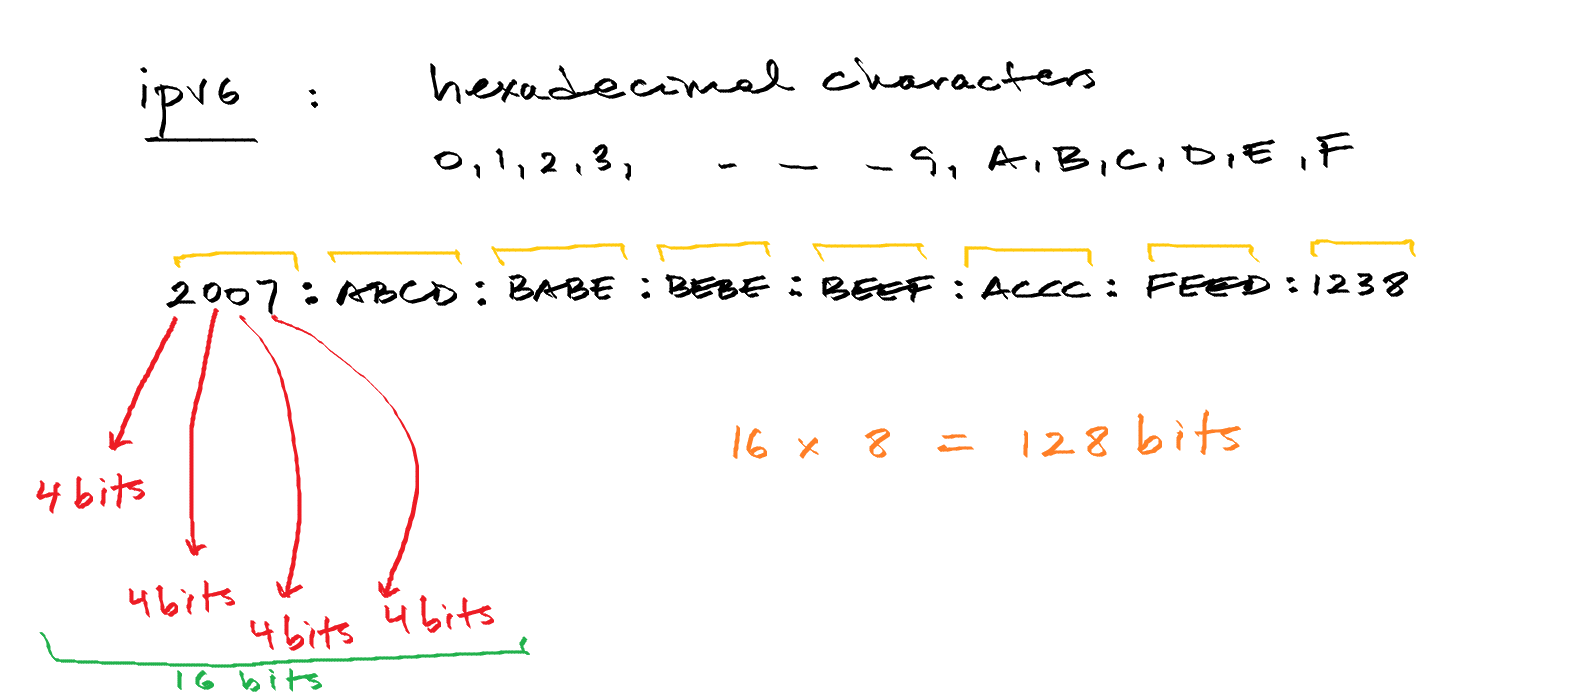 ipv6 : hexadecimal characters
0, 1, 2, 3, - - - 9, A, B, C, D, E, F
2007 : ABCD : BABE : BEBE : BEEF : ACCC : FEED : 1238
16 x 8 = 128 bits
4 bits
4 bits
4 bits
4 bits
16 bits